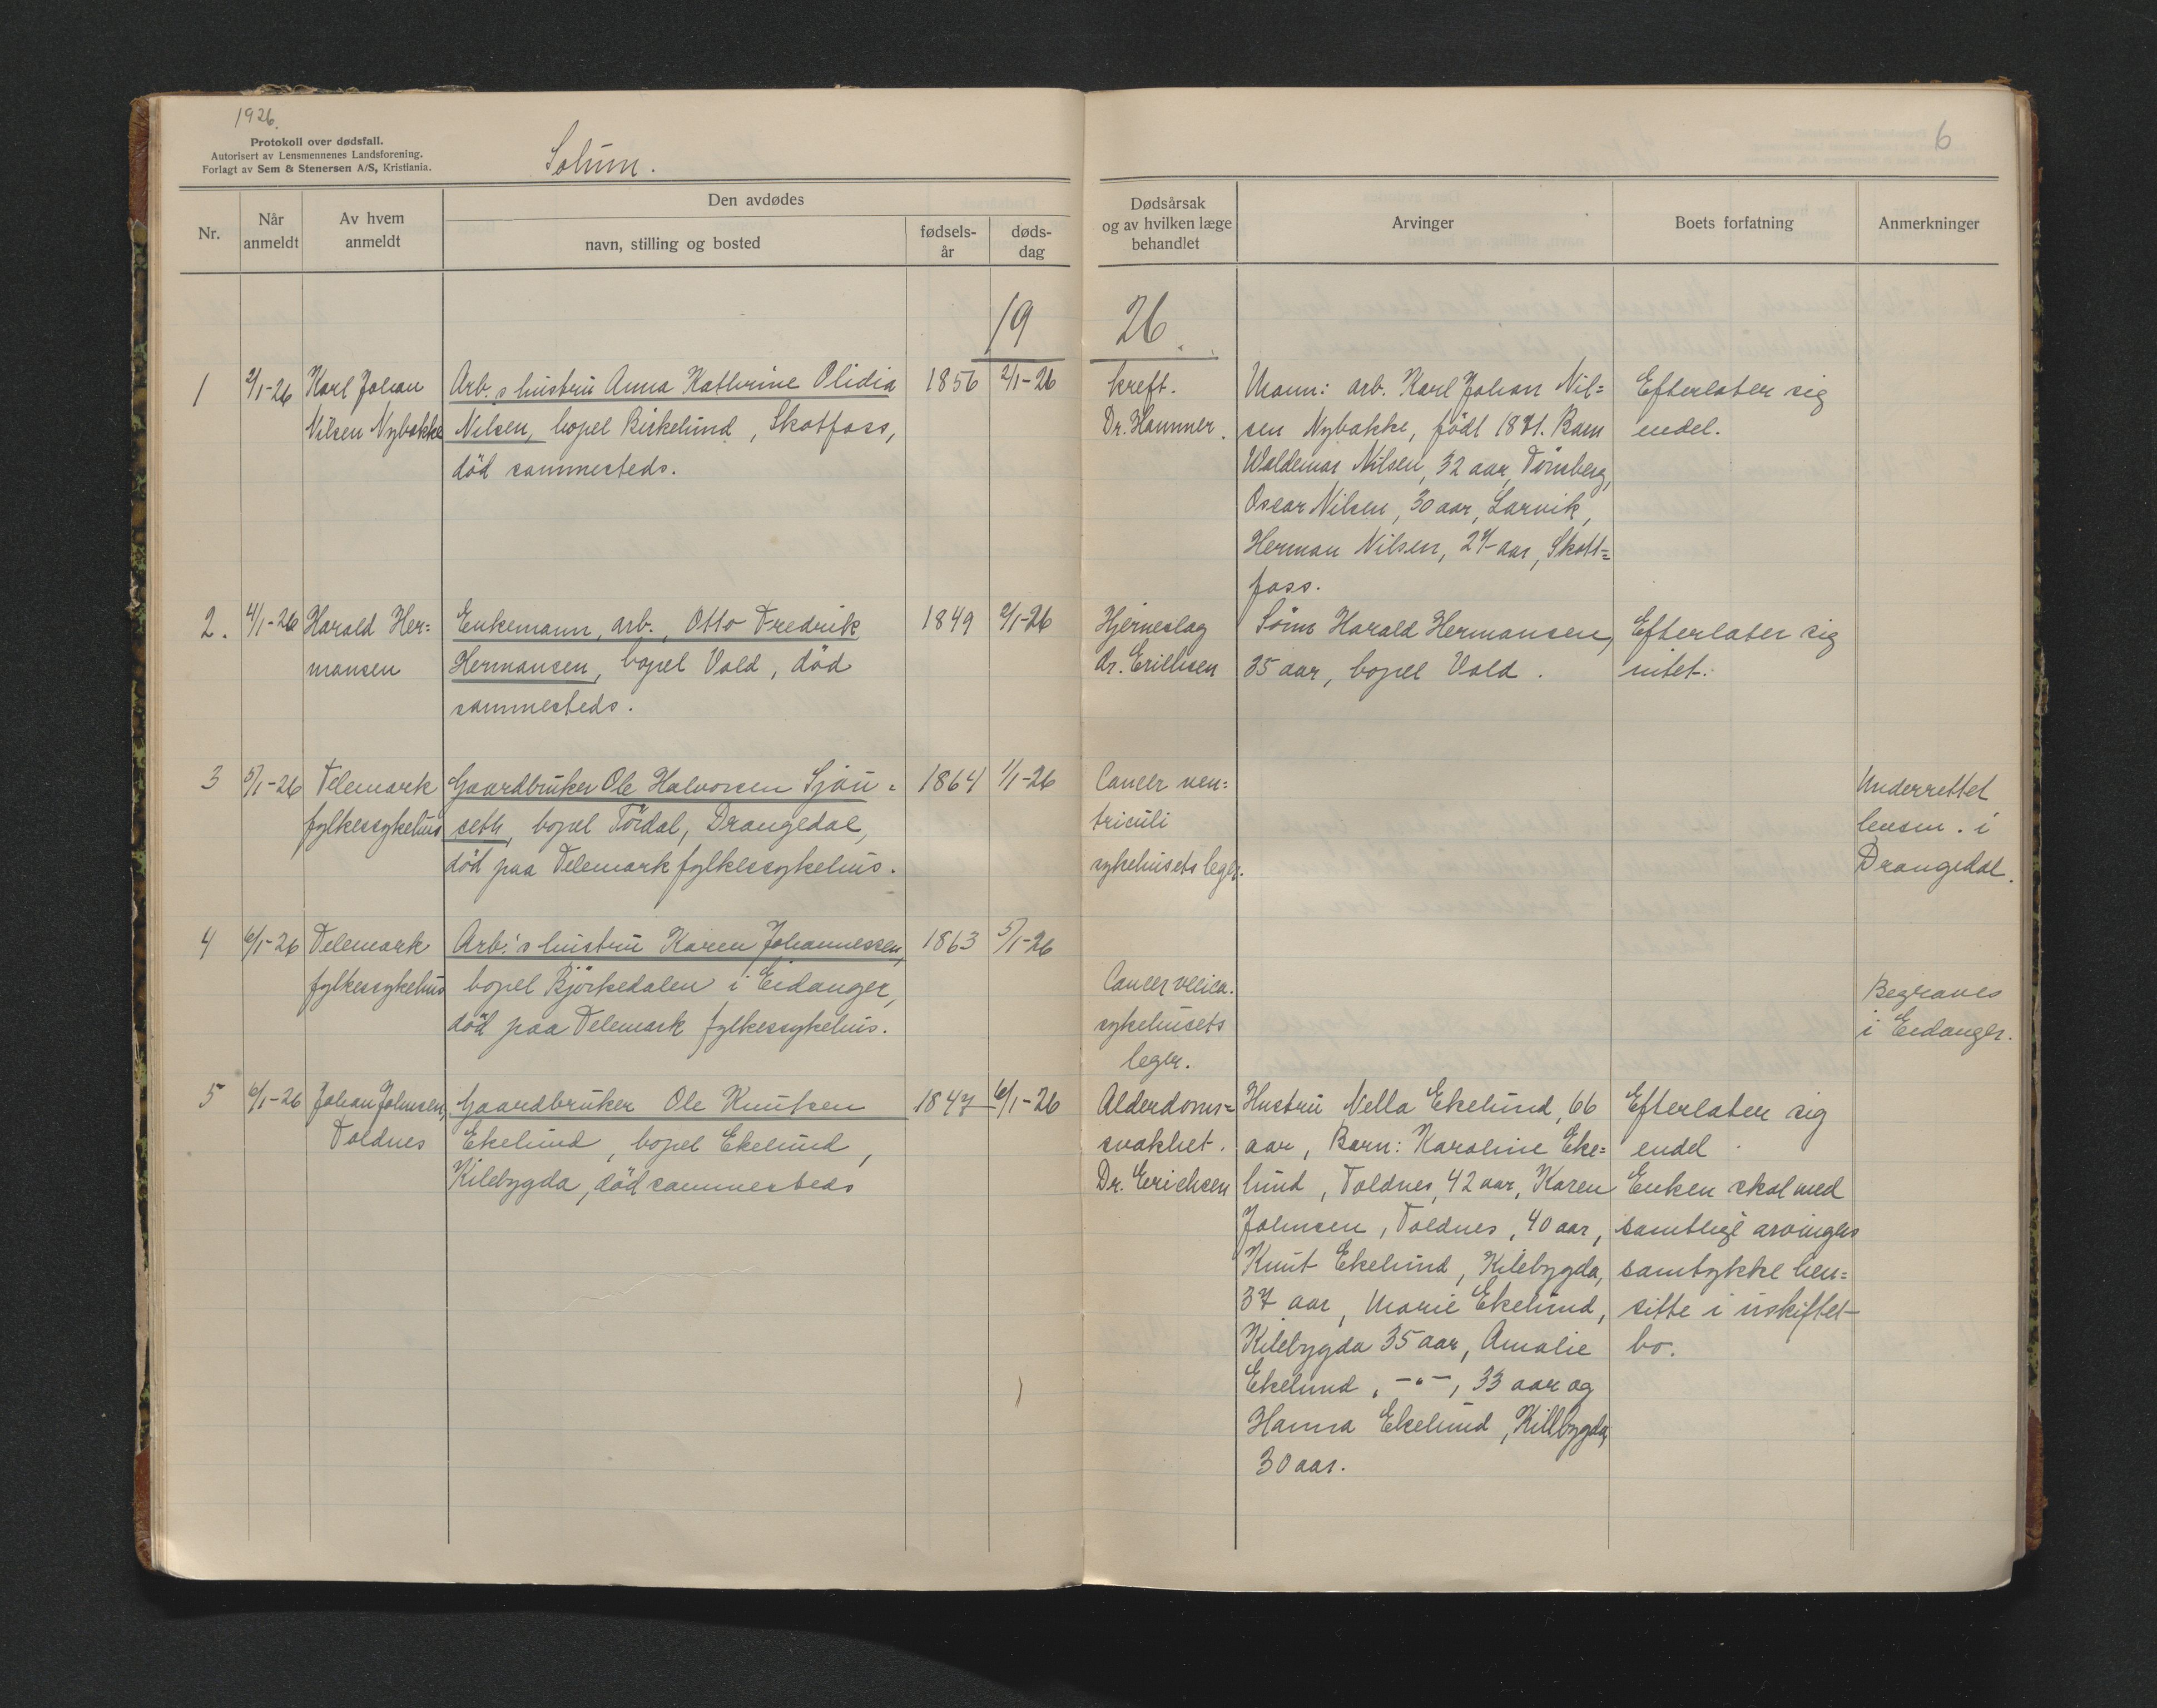 1926.
Protokoll over dødsfall.
Autorisert av Lensmennenes Landsforening.
Forlagt av Sem & Stenersen A/S, Kristiania.
Solum.
6
Nr.
Når anmeldt
Av hvem anmeldt
Den avdødes
navn, stilling og bosted
fødsels-
år
døds-
dag
Dødsårsak
og av hvilken læge
behandlet
Arvinger
Boets forfatning
Anmerkninger
19 26.
1 2/1-26 Karl Johan Arb.s hustru Anna Kathrine Olidia 1856 2/1-26 kreft. Mann: arb. Karl Johan Nil= Efterlater sig
Nilsen Nybakke Nilsen, bopel Birkelund, Skotfoss, Dr. Hammer. sen Nybakke, født 1871. Barn endel.
död sammesteds. Waldemar Nilsen, 32 aar, Tönsberg,
Oscar Nilsen, 30 aar, Larvik,
Herman Nilsen, 27 aar, Skott=
foss.
2. 4/1-26 Harald Her= Enkemann, arb. Otto Fredrik 1849 2/1-26 Hjerneslag Sönn Harald Hermansen, Efterlater sig
mansen Hermansen, bopel Vold, död Dr. Erichsen 35 aar, bopel Vold. intet.
sammesteds.
3 5/1-26 Telemark Gaardbruker Ole Halvorsen Sjau= 1864 1/1-26 Cancer ven= Underrettet
fylkessykehus seth, bopel Tördal, Drangedal, triculi lensm. i
död paa Telemark fylkessykehus. sykehusets leger. Drangedal.
4 6/1-26 Telemark Arb.'s hustru Karen Johannessen, 1863 5/1-26
fylkessykehus bopel Björkedalen i Eidanger, Cancer vesica. Begraves
död paa Telemark fylkessykehus. sykehusets i Eidanger.
leger.
5 6/1-26 Johan Johnsen, Gaardbruker Ole Knutsen 1847 6/1-26 Alderdoms= Hustru Nella Ekelund, 66 Efterlater sig
Toldnes Ekelund, bopel Ekelund, svakhet. aar, Barn: Karoline Eke= endel.
Kilebygda, död sammesteds Dr. Erichsen lund, Toldnes, 42 aar, Karen Enken skal med
Johnsen, Toldnes, 40 aar, samtlige arvingers
Knut Ekelund, Kilebygda, samtykke hen=
37 aar, Marie Ekelund, sitte i uskiftet
Kilebygda 35 aar, Amalie bo.
Ekelund, -"-, 33 aar og
Hanna Ekelund, Kilebygda,
30 aar.